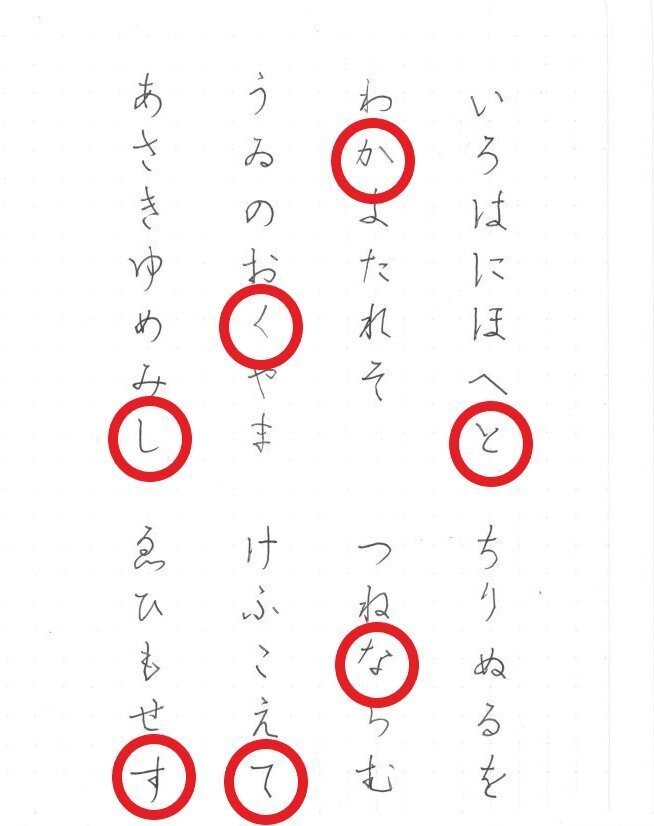 いろはにほへと ちりぬるを
わかよたれそ つねならむ
うゐのおくやま けふこえて
あさきゆめみし ゑひもせす